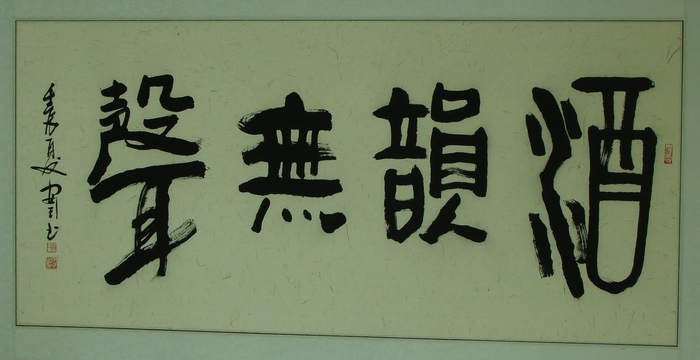 酒韻無聲